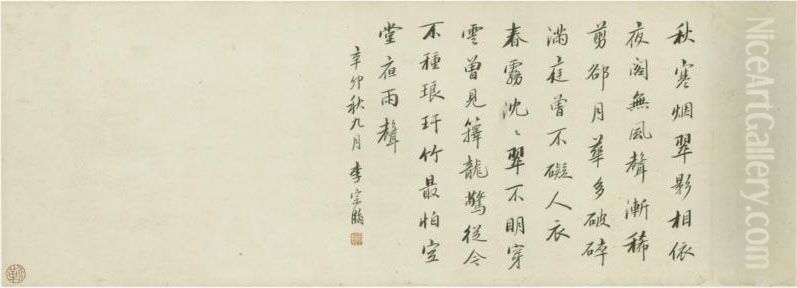 秋寒烟翠影相依
夜阁無風聲漸稀
剪郤月華多破碎
满庭曾不礙人衣
春霧沈〻翠不明穿
雲曾見籜龍驚從今
不種琅玕竹最怕空
堂夜雨聲
辛卯秋九月 李宗瀚
NiceArtGallery.com
NiceArtGallery.com